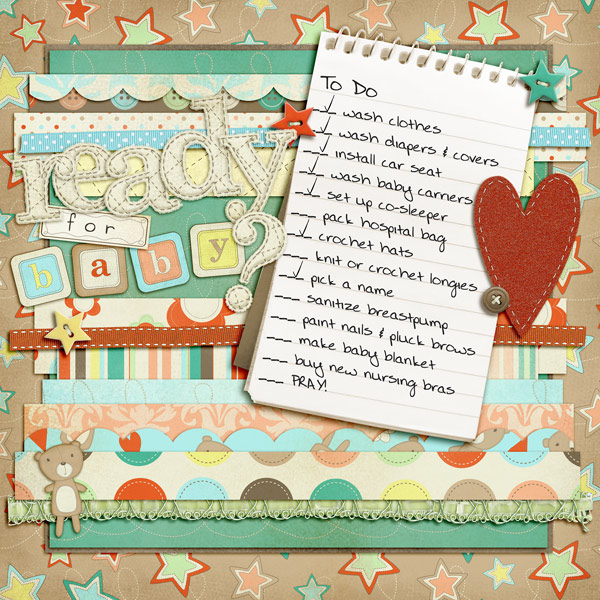 ready
for
baby
?
To Do
✓ wash clothes
✓ wash diapers & covers
✓ install car seat
✓ wash baby carriers
✓ set up co-sleeper
___ pack hospital bag
✓ crochet hats
___ knit or crochet longies
✓ pick a name
___ sanitize breastpump
___ paint nails & pluck brows
___ make baby blanket
___ buy new nursing bras
___ PRAY!